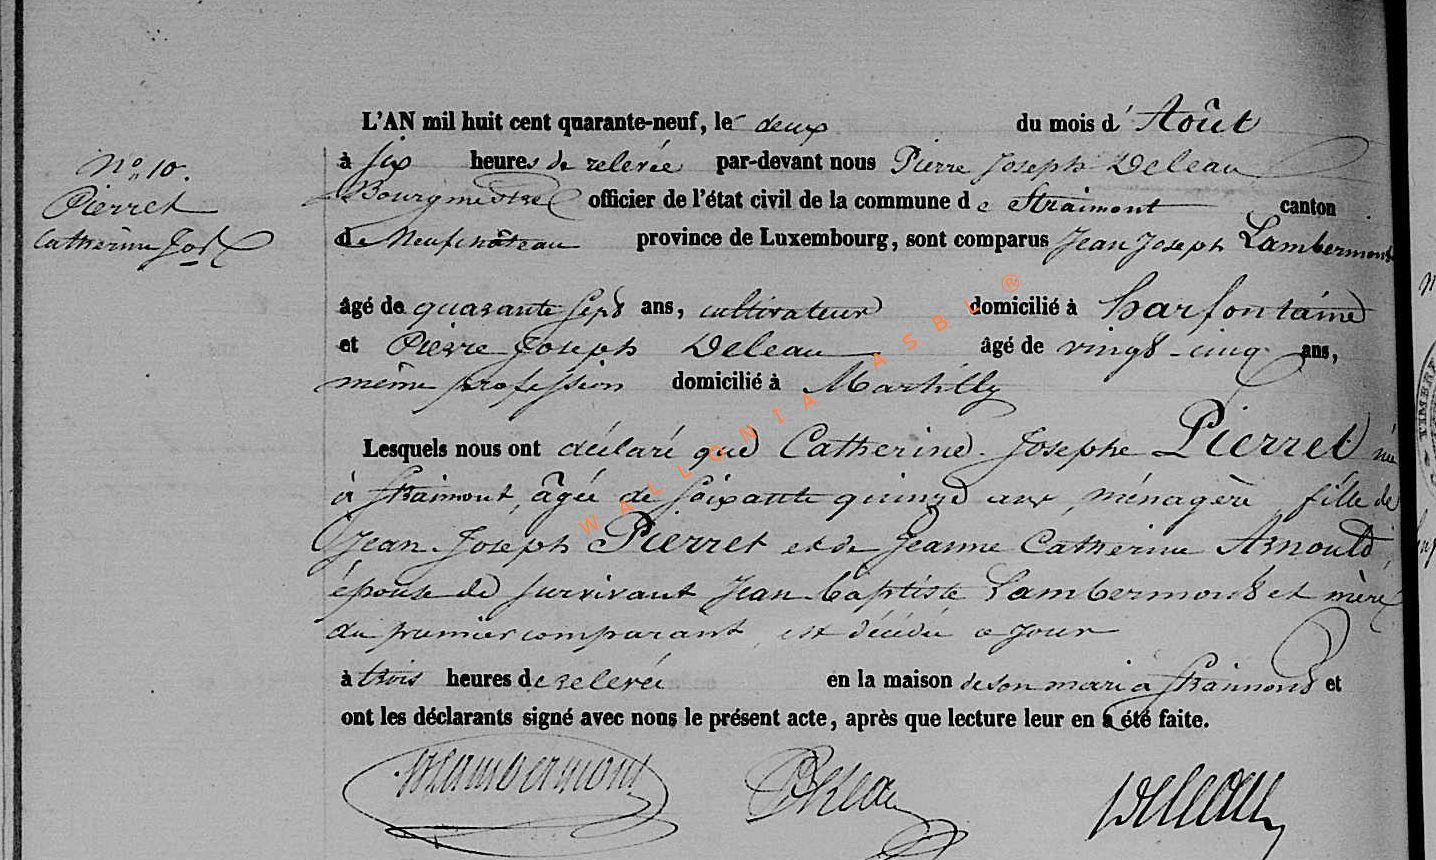 N° 10.
Pierret
Catherine Jos.
L'AN mil huit cent quarante-neuf, le deux du mois d' Août
à six heures de relevée par-devant nous Pierre Joseph Deleau
Bourgmestre officier de l'état civil de la commune de Straimont canton
de Neufchâteau province de Luxembourg, sont comparus Jean Joseph Lambermont
âgé de quarante sept ans, cultivateur domicilié à harfontaine
et Pierre Joseph Deleau âgé de vingt-cinq ans,
même profession domicilié à Martilly
Lesquels nous ont déclaré que Catherine Josephe Pierret née
à Straimont, âgée de soixante quinze ans, ménagère fille de
Jean Joseph Pierret et de Jeanne Catherine Arnould,
épouse de survivant Jean baptiste Lambermont et mère
du premier comparant, est décédée ce jour
à trois heures de relevée en la maison de son mari à Straimont et
ont les déclarants signé avec nous le présent acte, après que lecture leur en a été faite.
Lambermont Deleau Deleau
WALLONIA ASBL ®
TIMBRE